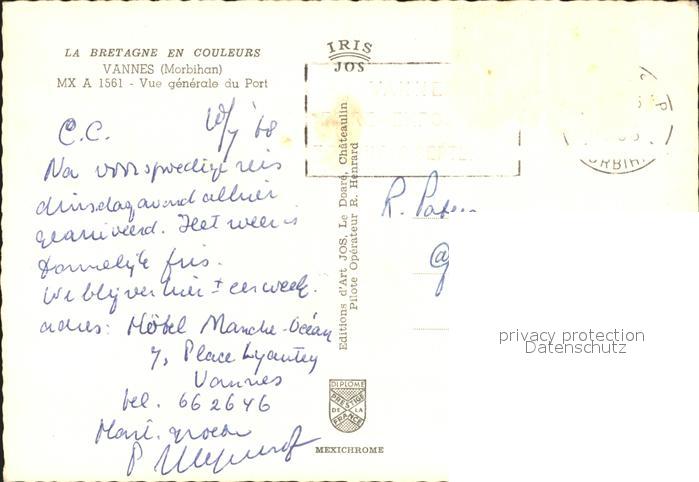 LA BRETAGNE EN COULEURS
VANNES (Morbihan)
MX A 1561 - Vue générale du Port
IRIS
JOS
VANNES
ORBIH
C.C. 10/7 '68
Na voorspoedige reis
dinsdagavond alhier
gearriveerd. Het weer is
tamelijk fris.
We blijven hier ± een week.
adres: Hôtel Manche-Océan
7, Place Lyautey
Vannes
tel. 662646
Hart. groeten
P
R.
@
Editions d'Art JOS, Le Doaré, Châteaulin
Pilote Opérateur R. Henrard
DIPLOME
PRESTIGE
DE LA
FRANCE
MEXICHROME
privacy protection
Datenschutz